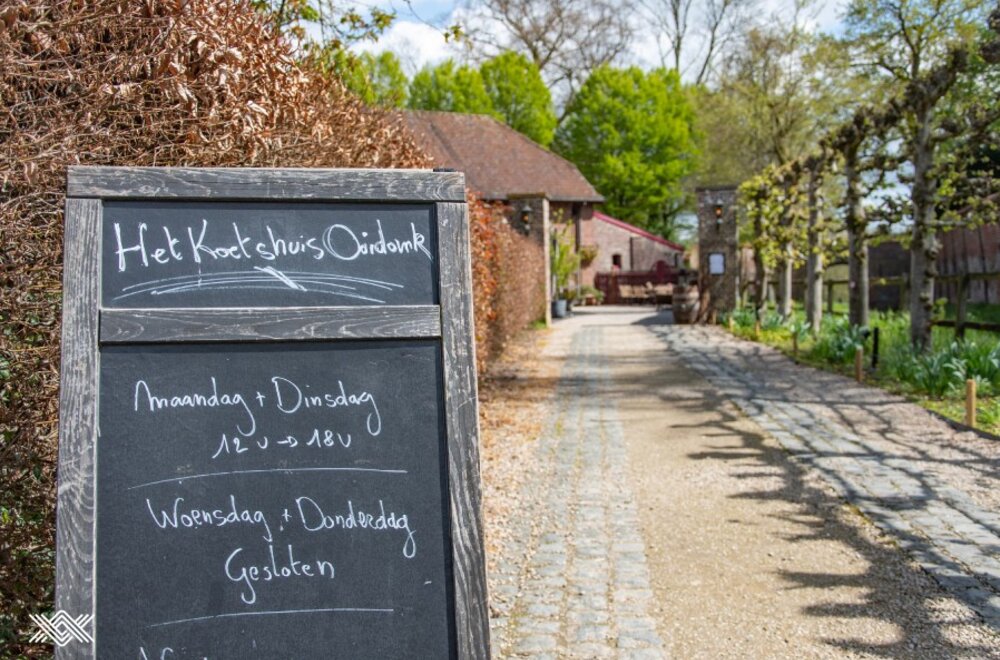 Het Koetshuis Ooidonk
Maandag + Dinsdag
12u -> 18u
Woensdag + Donderdag
Gesloten